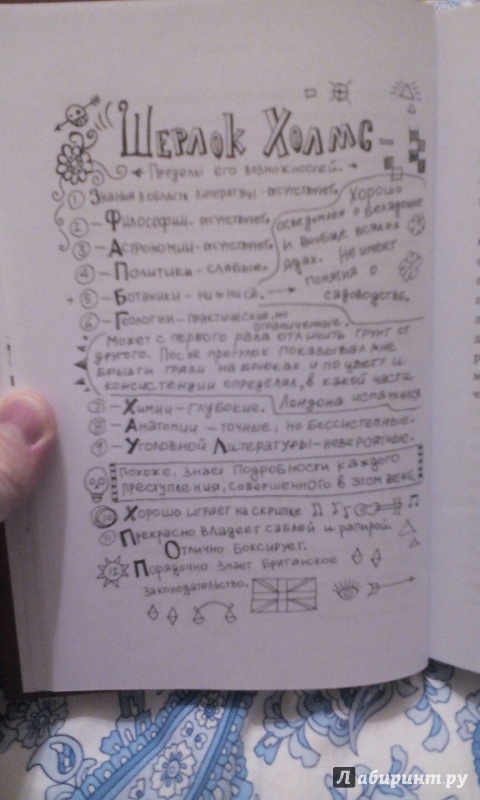 Шерлок Холмс –
Пределы его возможностей.
1 Знания в области литературы - отсутствуют.
2 – Философии - отсутствуют.
3 – Астрономии - отсутствуют.
4 – Политики - слабые.
5 – Ботаники -
Хорошо
осведомлен о беладонне
и вообще всяких
ядах. Не имеет
понятия о
садоводстве.
6 – Геологии - практические, но
ограниченные.
Может с первого раза отличить грунт от
другого. После прогулок показывал мне
брызги грязи на брюках и по цвету и
консистенции определял, в какой части
Лондона испачкался
7 – Химии - глубокие.
8 – Анатомии - точные, но бессистемные.
9 – Уголовной Литературы - невероятные.
Похоже, знает Подробности каждого
преступления, совершенного в этом веке.
10 Хорошо играет на скрипке
11 Прекрасно владеет саблей и рапирой
Отлично боксирует.
12 Порядочно знает Британское
законодательство.
Лабиринт.ру